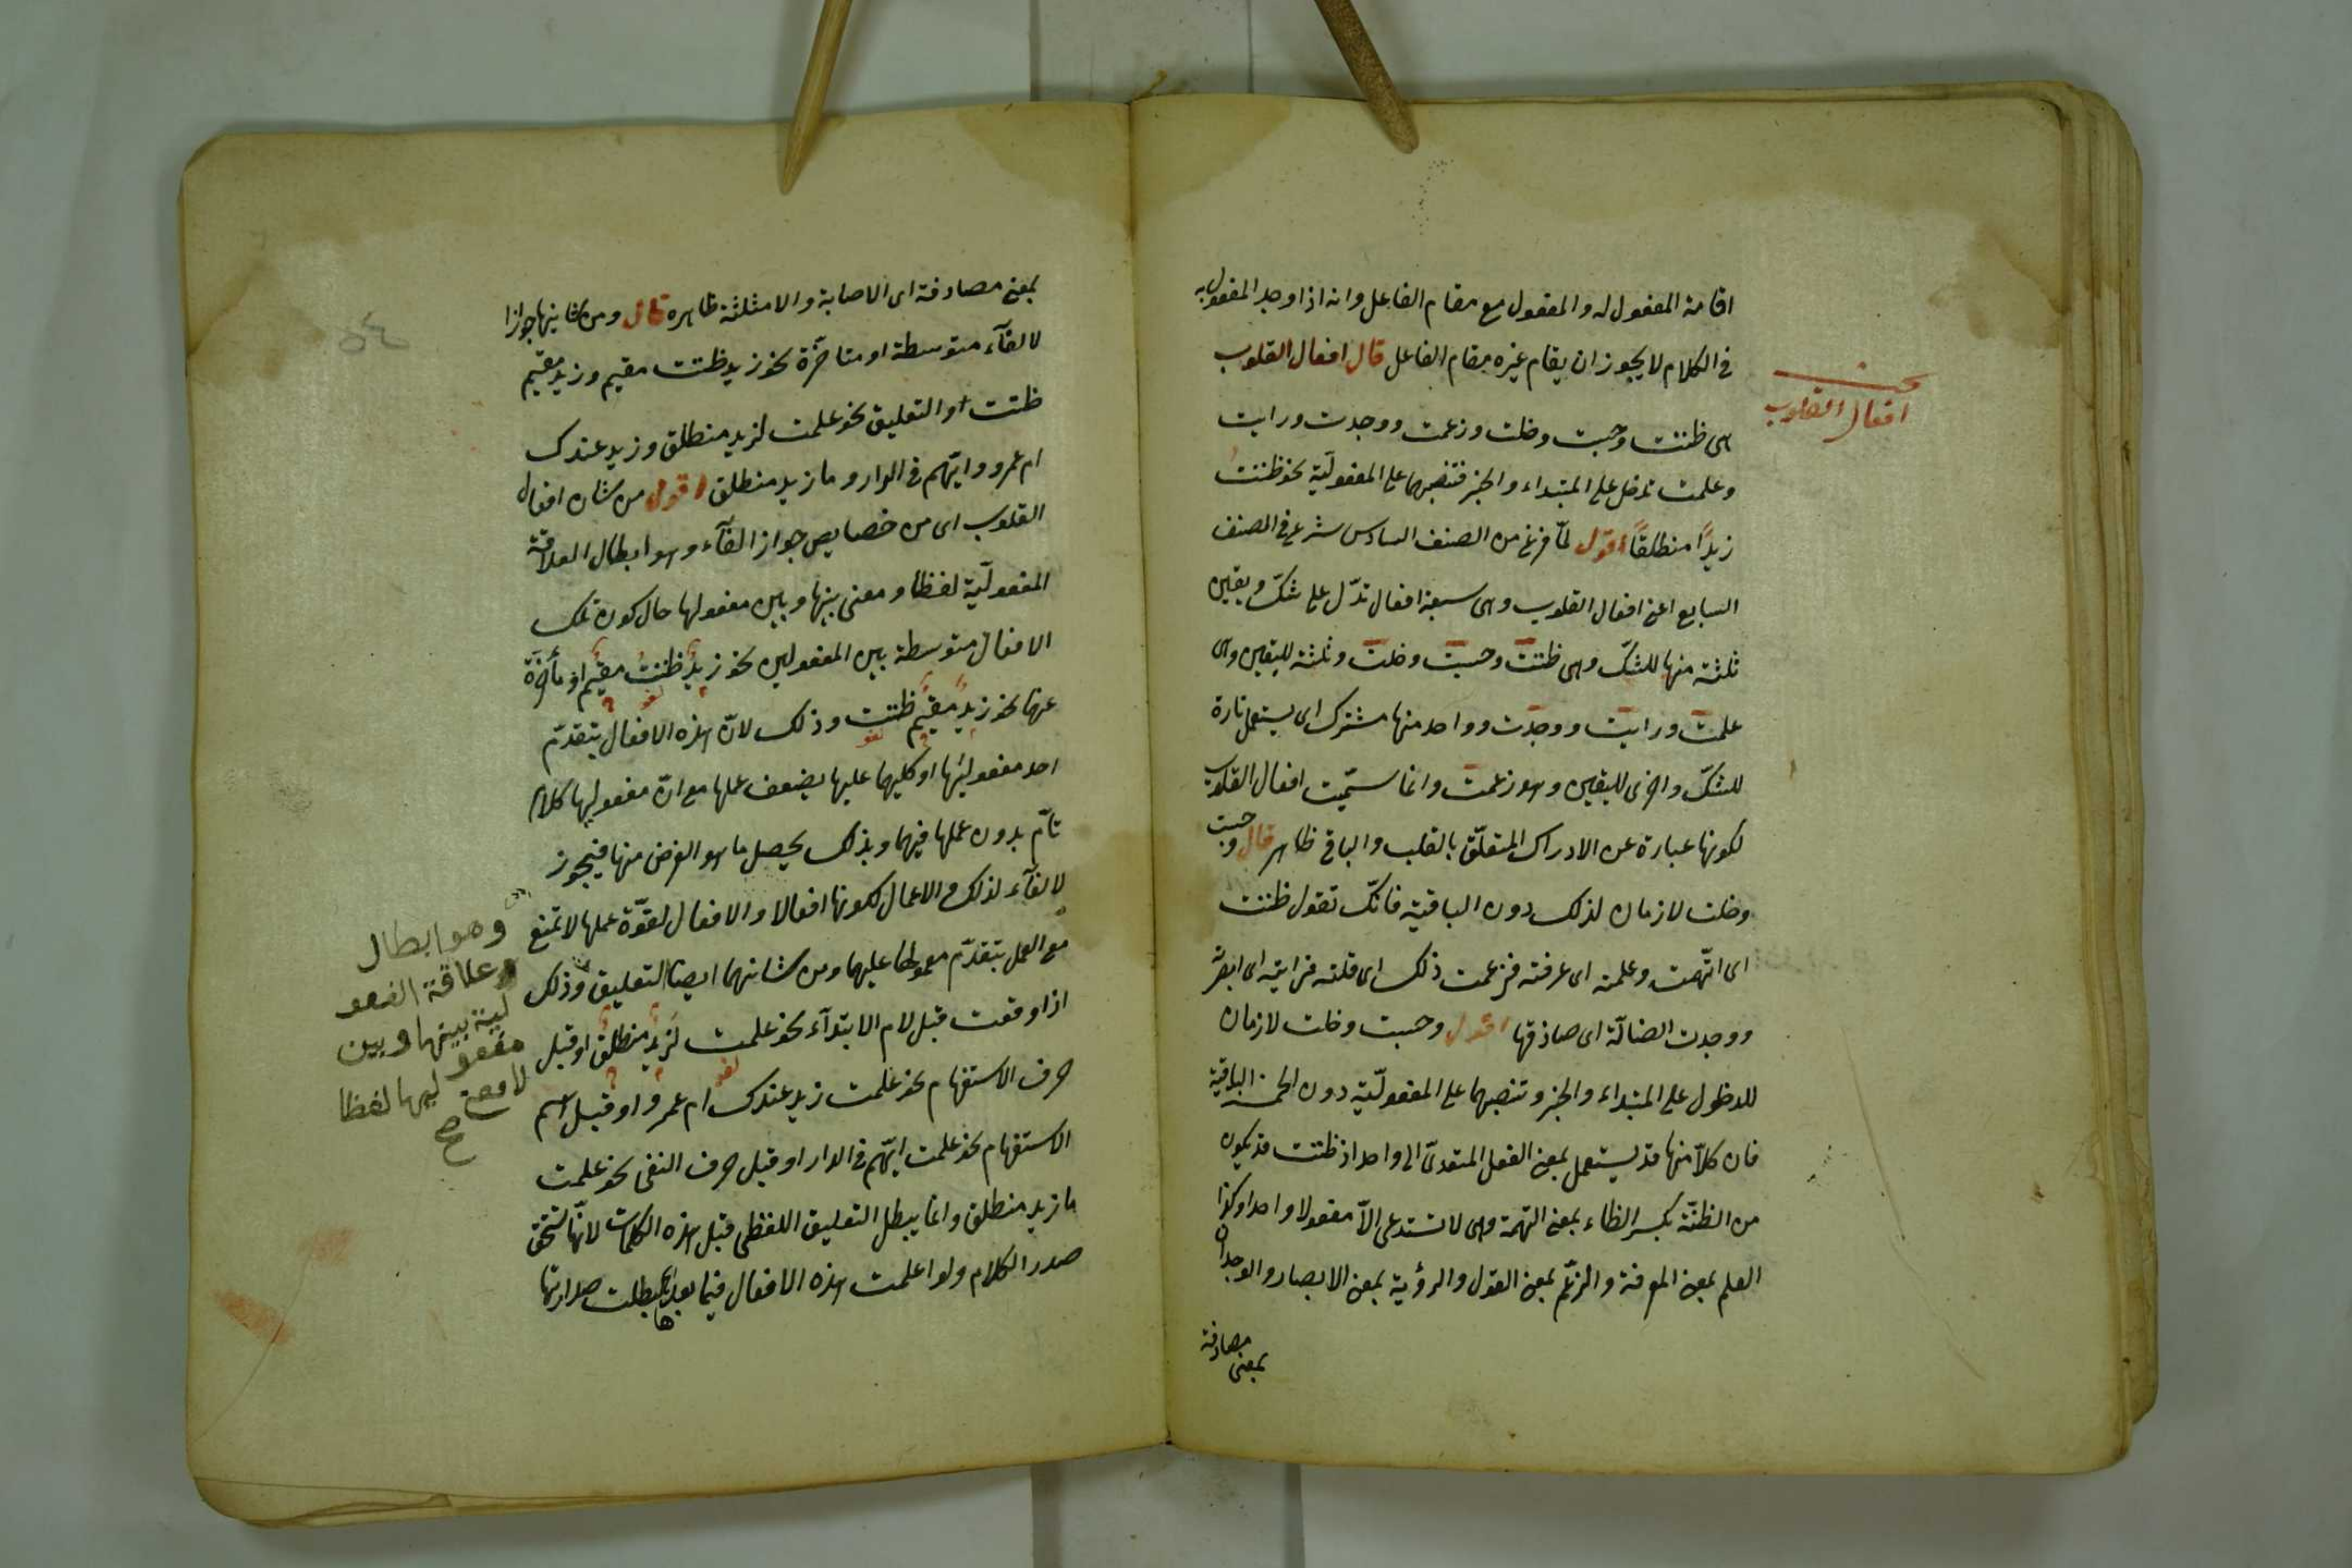 اقامة المفعول له والمفعول مع مقام الفاعل وانه اذا وجد المفعول به
فى الكلام لا يجوز ان يقام غيره مقام الفاعل قال افعال القلوب
بحث
افعال القلوب
هى ظننت وحسبت وخلت وزعمت ووجدت ورايت
وعلمت تدخل على المبتداء والخبر فتنصبهما على المفعوليّة نحو ظننتُ
زيدًا منطلقًا اقول لمّا فرغ من الصنف السادس شرع فى الصنف
السابع اعنى افعال القلوب وهى سبعة افعال تدّل على شكّ ويقين
ثلثة منها للشكّ وهى ظننت وحسبت وخلت وثلثة لليقين وهى
علمت ورايت ووجدت وواحد منها مشترك اى يستعمل تارة
للشكّ واخرى لليقين وهو زعمت وانما سمّيت افعال القلوب
لكونها عبارة عن الادراك المتعلّق بالقلب والباقى ظاهر قال وحسبت
وخلت لازمان لذلك دون الباقية فانّك تقول ظننت
اى اتّهمت وعلمته اى عرفته وزعمت ذلك اى قلته ورايته اى ابصرته
ووجدت الضالّة اى صادفتها اقول وحسبت وخلت لازمان
للدخول على المبتداء والخبر وتنصبهما على المفعوليّة دون الخمسة الباقية
فان كلّا منها قد يستعمل بمعنى الفعل المتعدىّ الى واحد اذ ظننت قد يكون
من الظنّة بكسر الظاء بمعنى التهمة وهى لا تستدعى الاّ مفعولا واحدا وكذا
العلم بمعنى المعرفة والزعم بمعنى القول والرؤية بمعنى الابصار والوجدان
بمعنى مصادفة
بمعنى مصادفة اى الاصابة والامثلة ظاهره قال ومن شانها جواز
الالغآء متوسطة او متأخرة نحو زيد ظننت مقيم وزيد مقيم
ظننت او التعليق نحو علمت لزيد منطلق وزيد عندك
ام عمرو وايّهم فى الدار وما زيد منطلق اقول من شان افعال
القلوب اى من خصايص جواز الغآء وهو ابطال العلاقة
المفعوليّة لفظا ومعنى بينها وبين مفعولها حال كون تلك
الافعال متوسطة بين المفعولين نحو زيدٌ ظننتُ مقيمٌ او متأخرة
عنها نحو زيدٌ مقيمٌ ظننت وذلك لانّ هذه الافعال يتقدّم
احد مفعوليها او كليهما عليها يضعف عملها مع انّ مفعوليها كلام
تامّ بدون عملها فيهما وبذلك يحصل ما هو الغرض منها فيجوز
الالغآء لذلك والاعمال لكونها افعالا والافعال لقوّة عملها لا تمنع
مع العمل بتقدّم معمولها عليها ومن شانهما ايضا التعليق وذلك
اذا وقعت قبل لام الابتدآء نحو علمت لزيدٌ منطلقٌ او قبل
حرف الاستفهام نحو علمت زيد عندك ام عمرو او قبل اسم
الاستفهام نحو علمت ايّهم فى الدار او قبل حرف النفى نحو علمت
ما زيد منطلق وانما يبطل التعليق اللفظى قبل هذه الكلمات لانّها تستحق
صدر الكلام ولو اعلمت هذه الافعال فيما بعدها بطلت صدارتها
وهو ابطال
علاقة المفعو
لية بينها وبين
مفعو ليها لفظا
لا معنى
صح
٥٤